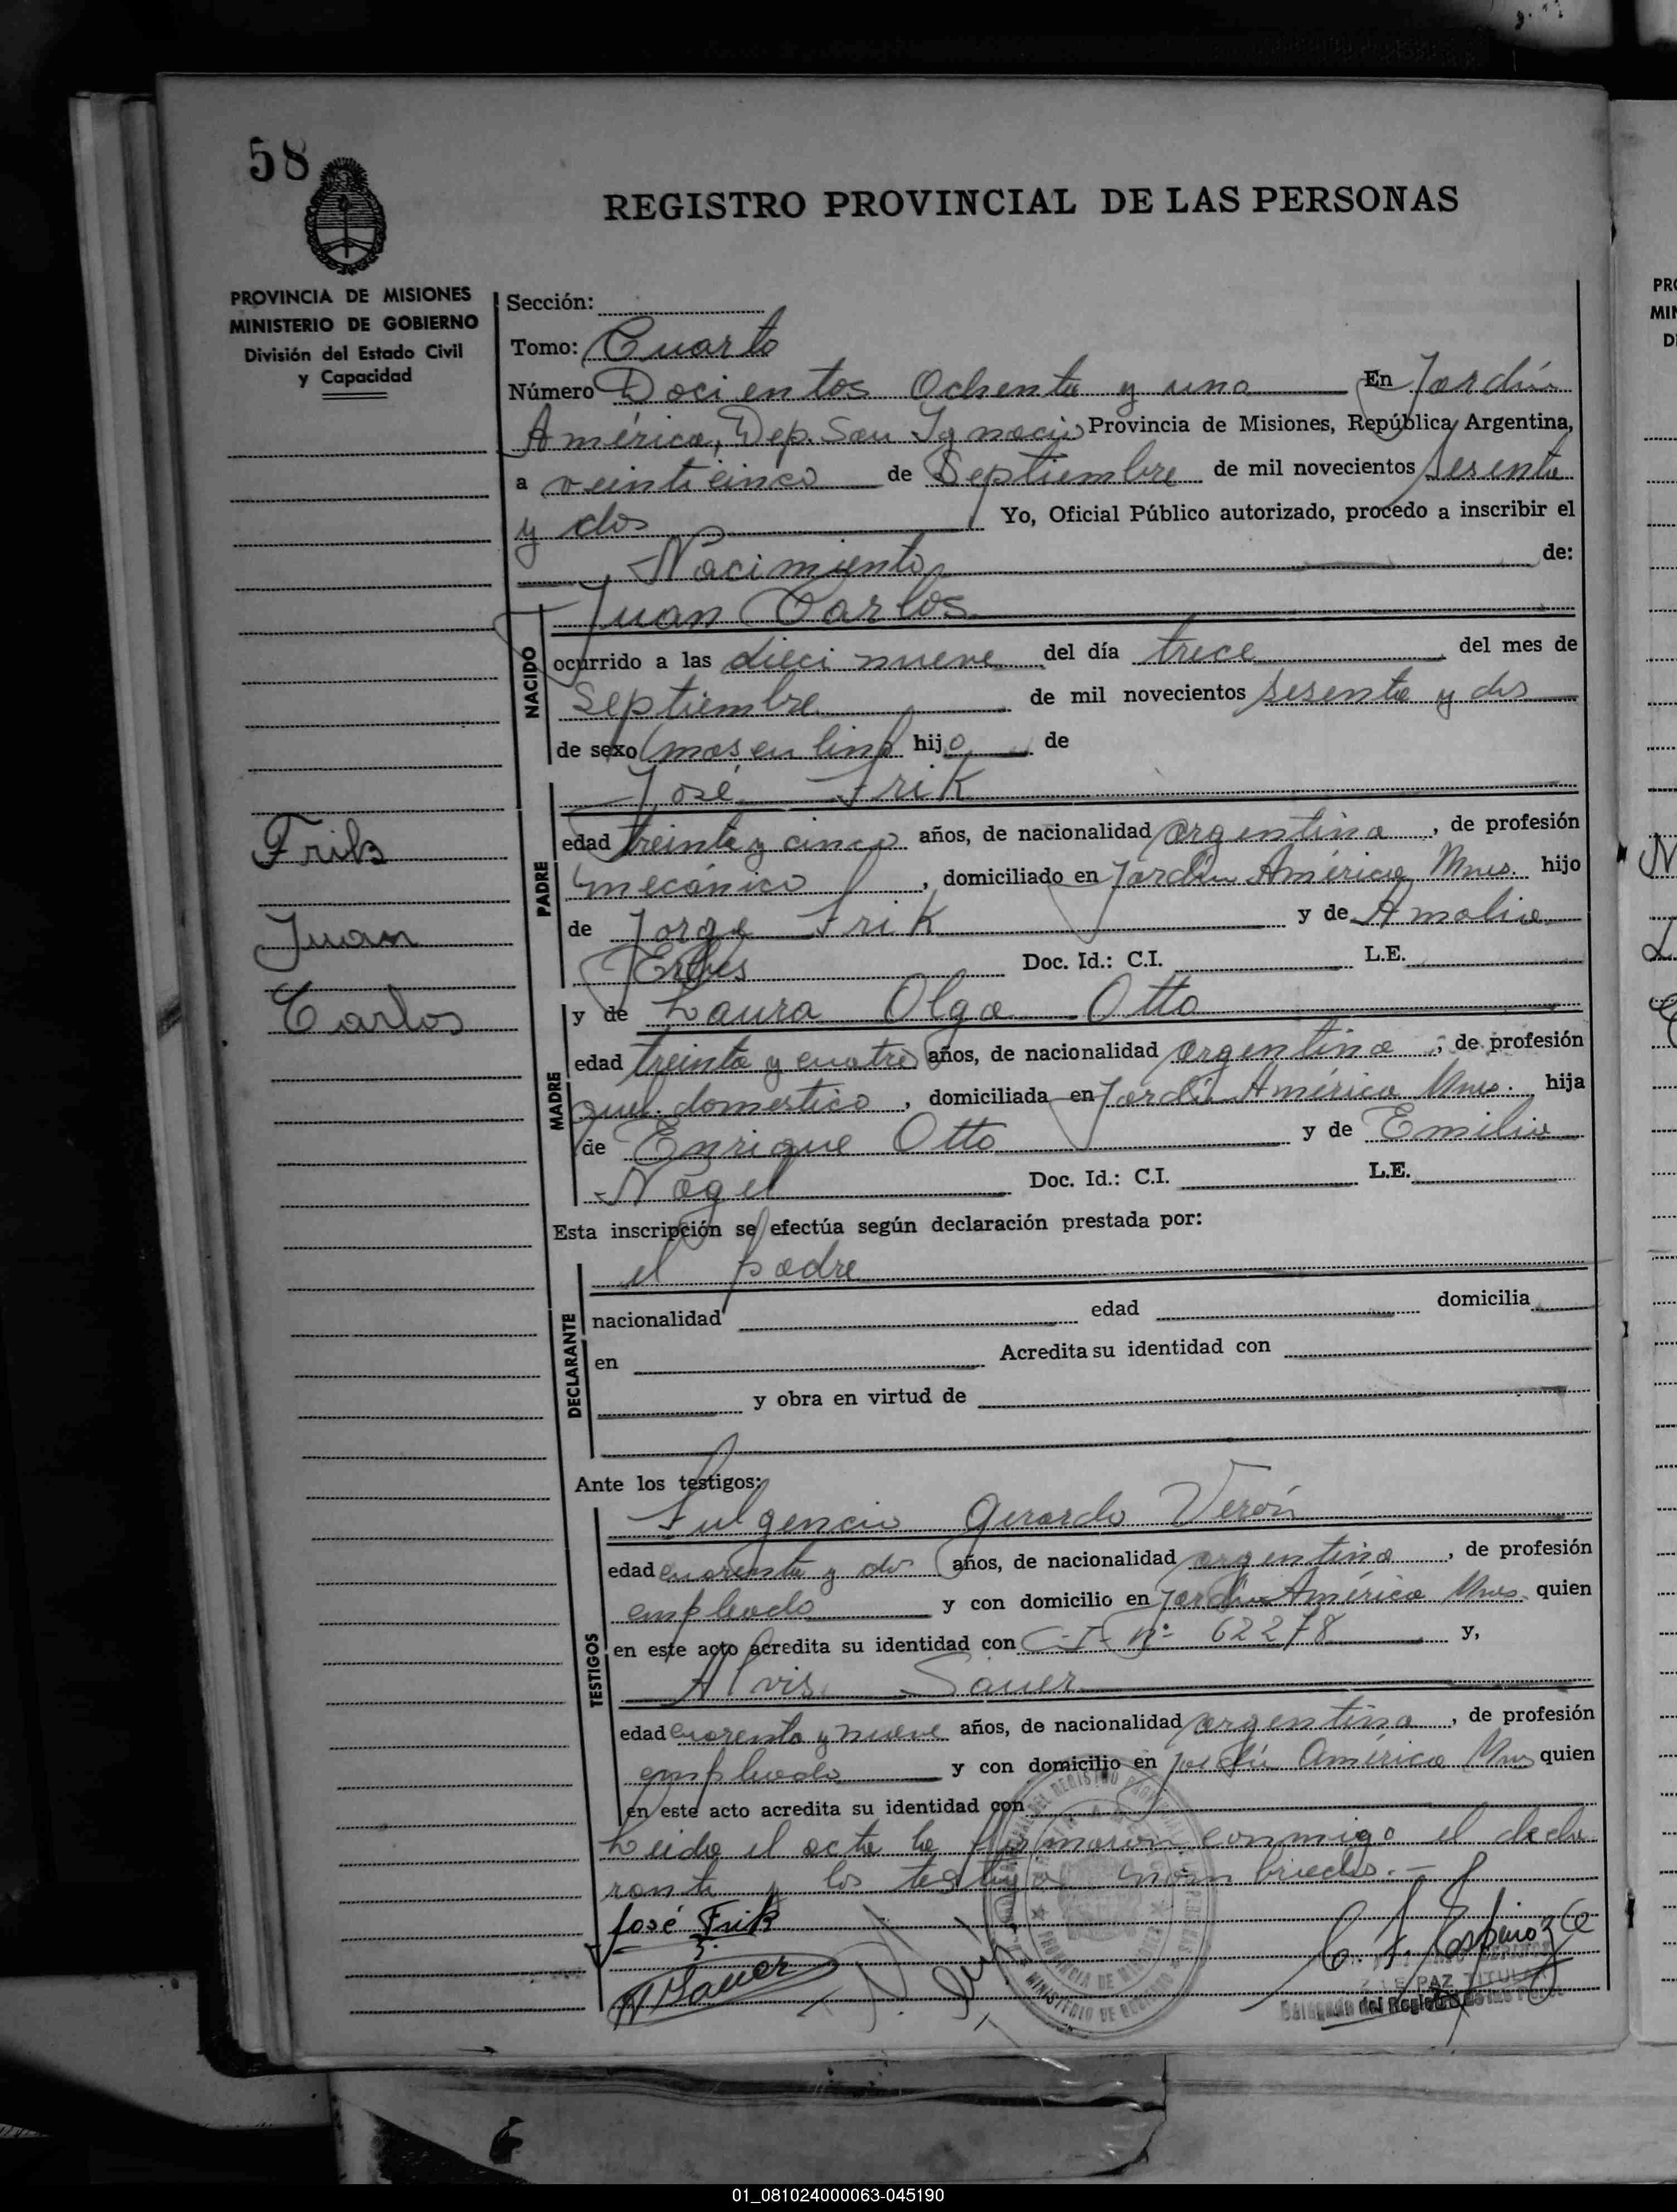 58
REGISTRO PROVINCIAL DE LAS PERSONAS
PROVINCIA DE MISIONES
MINISTERIO DE GOBIERNO
División del Estado Civil
y Capacidad
Sección:
Tomo: Cuarto
Número Docientos Ochenta y uno En Jardín
América, Dep. San Ignacio Provincia de Misiones, República Argentina,
a veinticinco de Septiembre de mil novecientos sesenta
y dos Yo, Oficial Público autorizado, procedo a inscribir el
Nacimiento de:
Juan Carlos
NACIDO
ocurrido a las dieci nueve del día trece del mes de
Septiembre de mil novecientos sesenta y dos
de sexo masculino hijo de
José Frik
PADRE
edad treinta y cinco años, de nacionalidad argentina, de profesión
mecánico, domiciliado en Jardín América Mnes. hijo
de Jorge Frik y de Amalia
Doc. Id.: C.I. L.E.
Frik
Juan
Carlos
y de Laura Olga Otto
MADRE
edad treinta y cuatro años, de nacionalidad argentina, de profesión
quel. domestico, domiciliada en Jardín América Mnes. hija
de Enrique Otto y de Emilia
Nagel Doc. Id.: C.I. L.E.
Esta inscripción se efectúa según declaración prestada por:
el padre
DECLARANTE
nacionalidad edad domicilia
en Acredita su identidad con
y obra en virtud de
Ante los testigos:
Fulgencio Gerardo Verón
TESTIGOS
edad cuarenta y dos años, de nacionalidad argentina, de profesión
empleado y con domicilio en Jardín América Mnes. quien
en este acto acredita su identidad con C.I. Nº 62278 y,
Alvis Sauer
edad cuarenta y nueve años, de nacionalidad argentina, de profesión
empleado y con domicilio en Jardín América Mnes quien
en este acto acredita su identidad con
Leida el acta la firmaron conmigo el decla
rante y los testigos nombrados.-
José Frik
A Sauer
C. F. Espinoza
DE PAZ TITULAR
Delegado del Registro
PROVINCIA DE MISIONES
MINISTERIO DE GOBIERNO
01_081024000063-045190